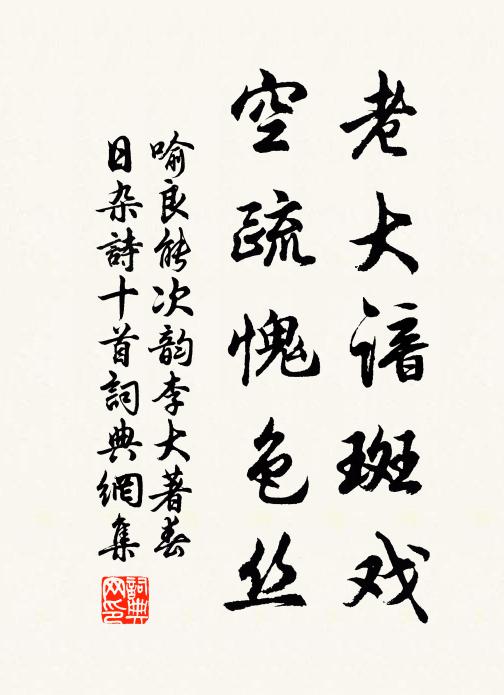 老大谙斑戏
空疏愧色丝
喻良能次韵李大著春
日杂詩十首詞典網集
詞典
网印